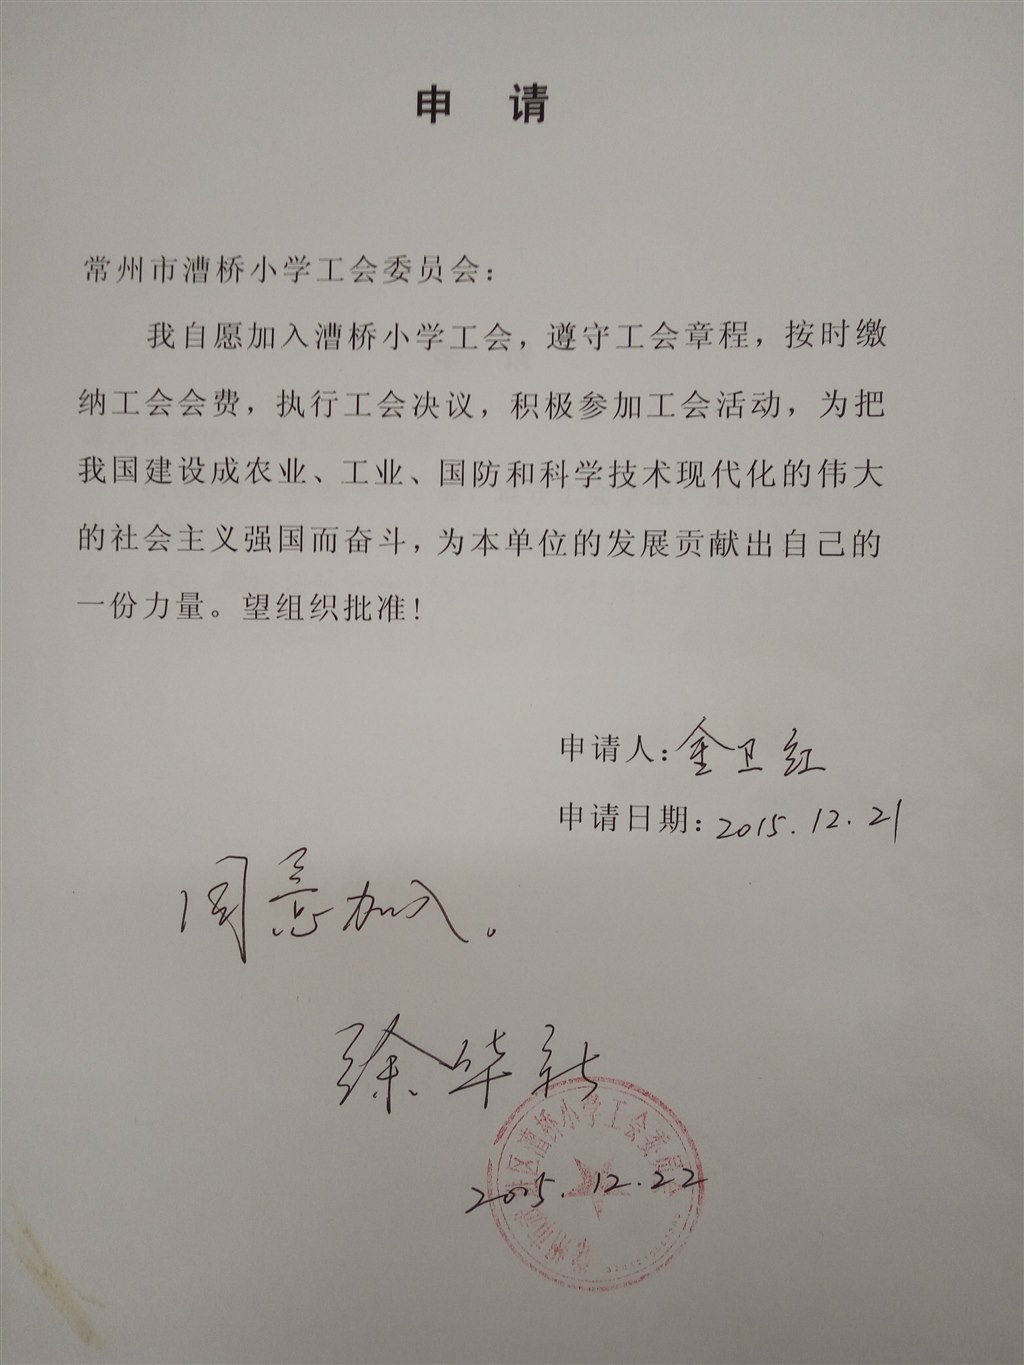 申 请
常州市漕桥小学工会委员会：
我自愿加入漕桥小学工会，遵守工会章程，按时缴
纳工会会费，执行工会决议，积极参加工会活动，为把
我国建设成农业、工业、国防和科学技术现代化的伟大
的社会主义强国而奋斗，为本单位的发展贡献出自己的
一份力量。望组织批准！
申请人：金卫红
申请日期：2015.12.21
同意加入。
徐华新
区漕桥小学工会委员
2015.12.22